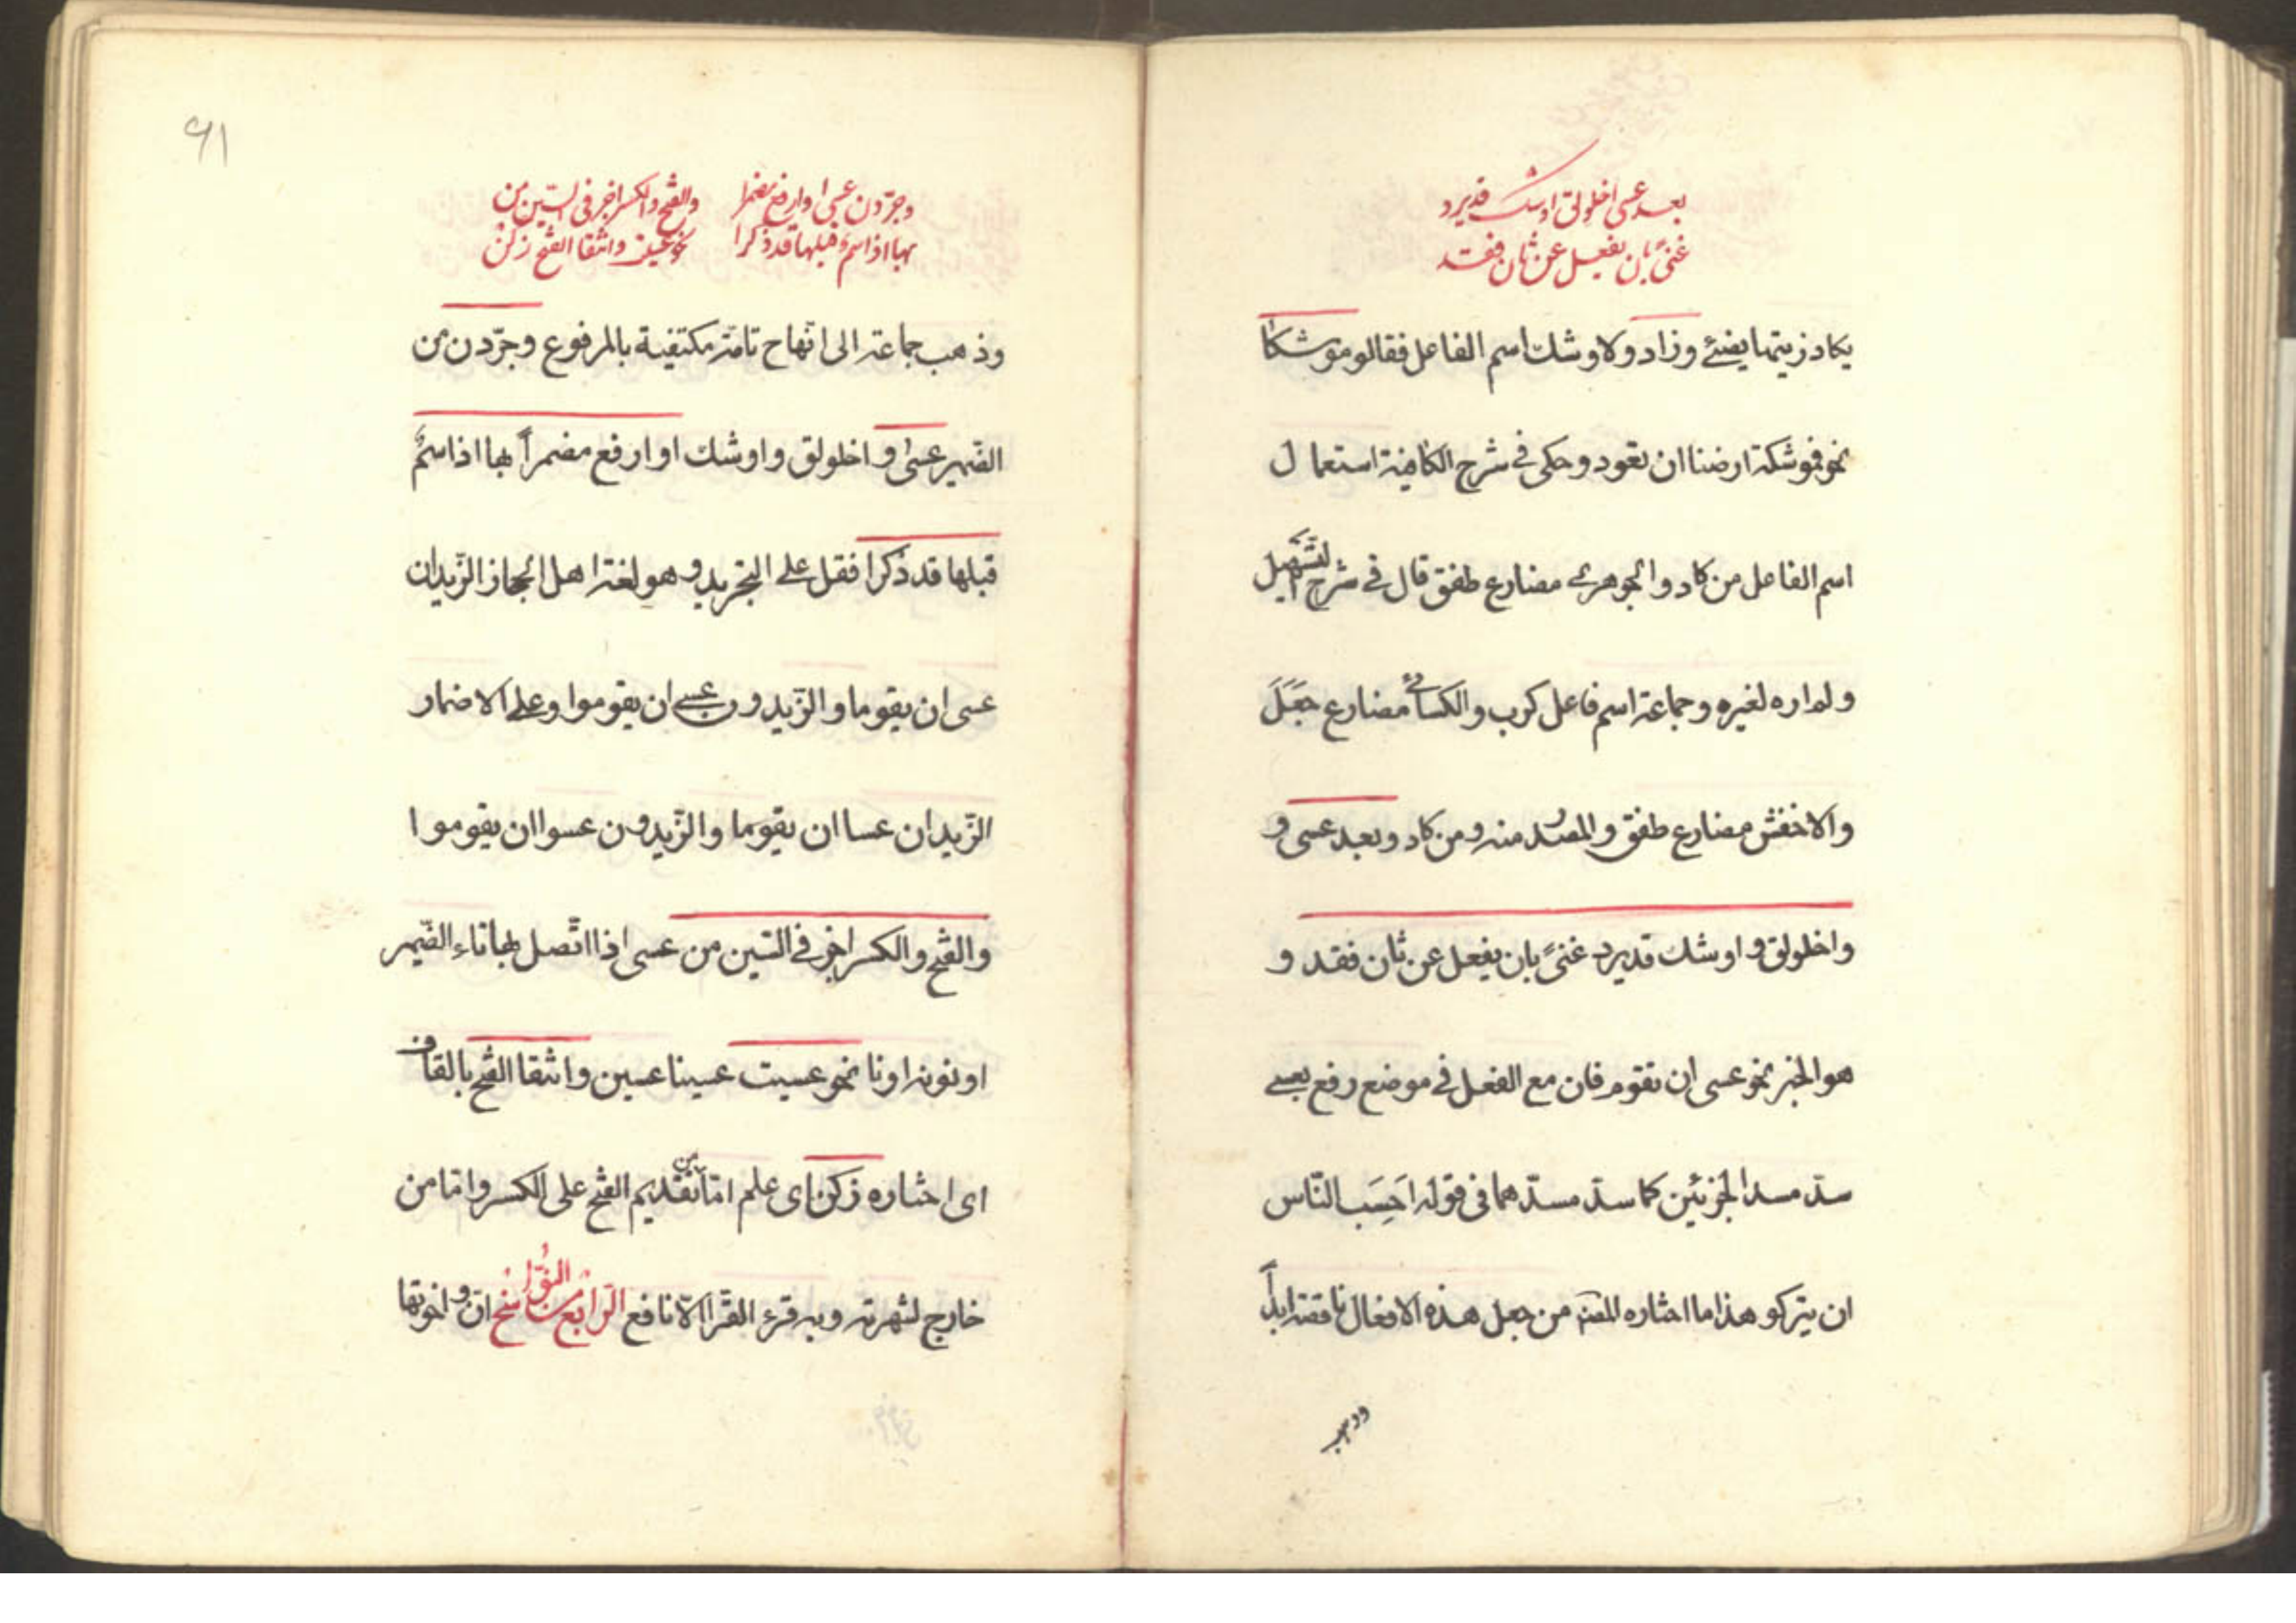 بعد عسى اخلولق اوشك قد يرد
غنىً بان يفعل عن ثان فقد
يكاد زيتها يضئ وزاد ولاوشك اسم الفاعل فقالو موشكا
نحو فموشكة ارضنا ان تعود وحكى فى شرح الكافية استعمال
اسم الفاعل من كاد والجوهرى مضارع طفق قال فى شرح التسهيل
ولم اره لغيره وجماعة اسم فاعل كرب والكسائى مضارع جَعَلَ
والاخفش مضارع طفق والمصدر منه ومن كاد وبعد عسى و
واخلولق و اوشك قد يرد غنىً بان يفعل عن ثان فقد و
هو الخبر نحو عسى ان تقوم فان مع الفعل فى موضع رفع بعسى
سدّ مسد الجزئين كما سدّ مسدّهما فى قوله اَحَسِبَ النّاس
ان يتركو هذا ما اختاره المصنّ من جعل هذه الافعال ناقصة ابداً
وذهب
٦١
وجرّدن عسى او ارفع مضمرا والفتح والكسر اجز فى السّين من
بها اذا اسم قبلها قد ذكرا نحو عسيت وانتقا الفتح زكن
وذهب جماعة الى انّها ح تامّة مكتفية بالمرفوع وجرّدن من
الضمير عسى و اخلولق و اوشك او ارفع مضمراً بها اذا اسمٌ
قبلها قد ذكرا فقل على التجريد و هو لغة اهل الحجاز الزّيدان
عسى ان يقوما و الزّيدون عسى ان يقوموا و على الاضمار
الزّيدان عسا ان يقوما والزّيدون عسوا ان يقوموا
والفتح والكسر اجز فى السّين من عسى اذا اتّصل بها تاء الضّمير
او نونه او نا نحو عسيت عسينا عسين وانتقا الفتح بالقاف
اى اختياره زكن اى علم امّا من تقديم الفتح على الكسر وامّا من
خارج لشهرته وبه قرء القرّا الّا نافع الرّابع من النّواسخ انّ و اخوتها